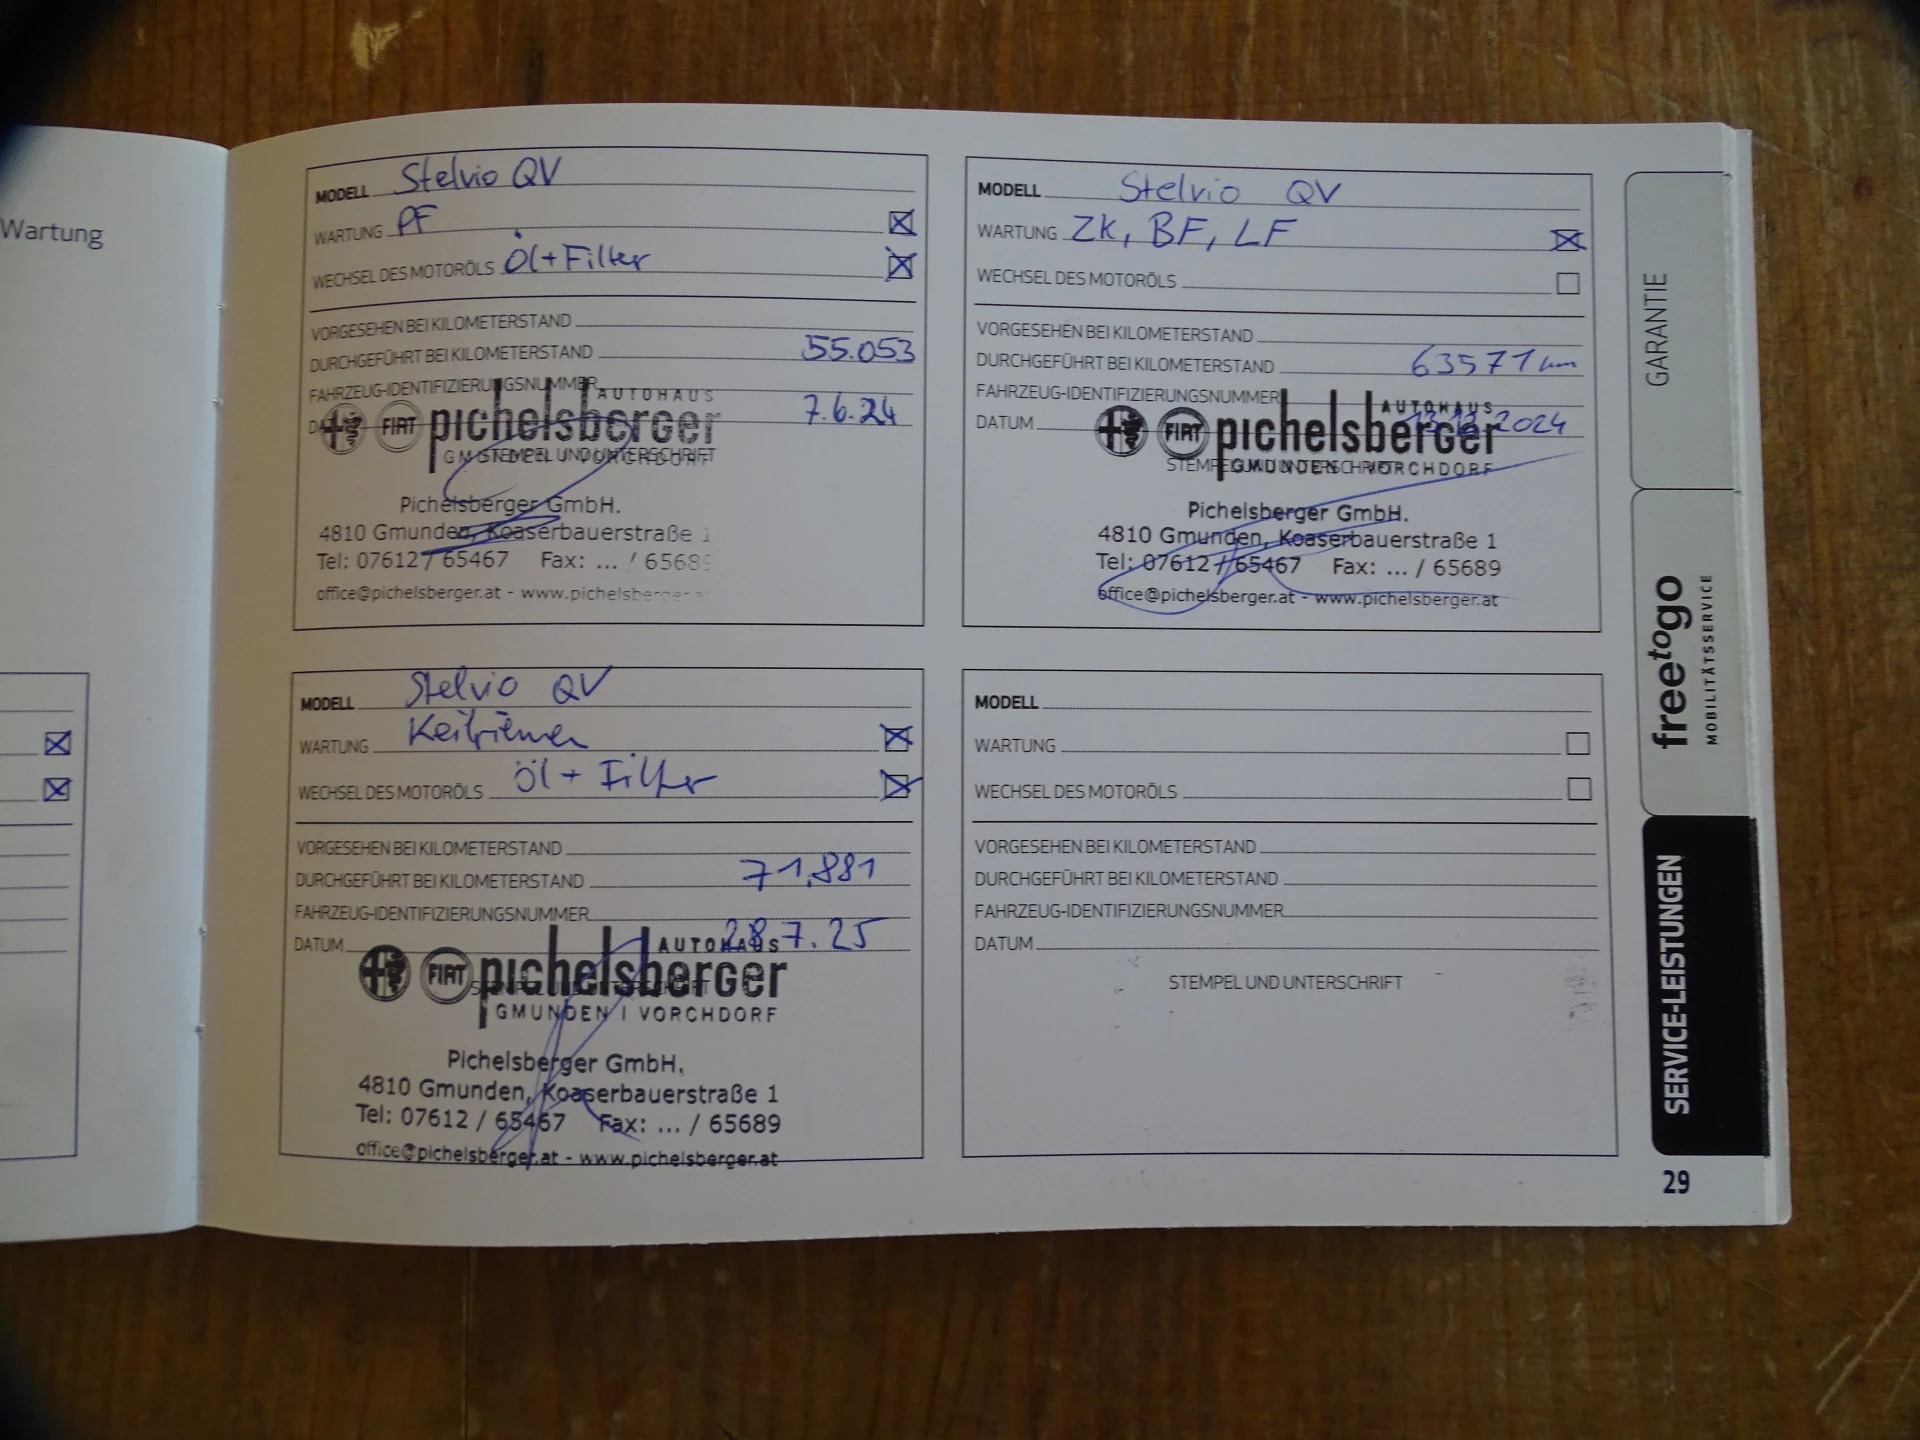 Wartung
MODELL Stelvio QV
WARTUNG PF
WECHSEL DES MOTORÖLS Öl + Filter
VORGESEHEN BEI KILOMETERSTAND
DURCHGEFÜHRT BEI KILOMETERSTAND 55.053
FAHRZEUG-IDENTIFIZIERUNGSNUMMER
7.6.24
AUTOHAUS
FIAT pichelsberger
STEMPEL UND UNTERSCHRIFT
Pichelsberger GmbH.
4810 Gmunden, Koaserbauerstraße 1
Tel: 07612 / 65467 Fax: ... / 65689
office@pichelsberger.at - www.pichelsberger.at
MODELL Stelvio QV
WARTUNG ZK, BF, LF
WECHSEL DES MOTORÖLS
VORGESEHEN BEI KILOMETERSTAND
DURCHGEFÜHRT BEI KILOMETERSTAND 63571 km
FAHRZEUG-IDENTIFIZIERUNGSNUMMER
DATUM 2024
AUTOHAUS
FIAT pichelsberger
GMUNDEN VORCHDORF
Pichelsberger GmbH.
4810 Gmunden, Koaserbauerstraße 1
Tel: 07612 / 65467 Fax: ... / 65689
office@pichelsberger.at - www.pichelsberger.at
MODELL Stelvio QV
WARTUNG Keilriemen
WECHSEL DES MOTORÖLS Öl + Filter
VORGESEHEN BEI KILOMETERSTAND
DURCHGEFÜHRT BEI KILOMETERSTAND 71.881
FAHRZEUG-IDENTIFIZIERUNGSNUMMER
DATUM 28.7.25
AUTOHAUS
FIAT pichelsberger
GMUNDEN | VORCHDORF
Pichelsberger GmbH.
4810 Gmunden, Koaserbauerstraße 1
Tel: 07612 / 65467 Fax: ... / 65689
office@pichelsberger.at - www.pichelsberger.at
MODELL
WARTUNG
WECHSEL DES MOTORÖLS
VORGESEHEN BEI KILOMETERSTAND
DURCHGEFÜHRT BEI KILOMETERSTAND
FAHRZEUG-IDENTIFIZIERUNGSNUMMER
DATUM
STEMPEL UND UNTERSCHRIFT
GARANTIE
freetogo
MOBILITÄTSSERVICE
SERVICE-LEISTUNGEN
29